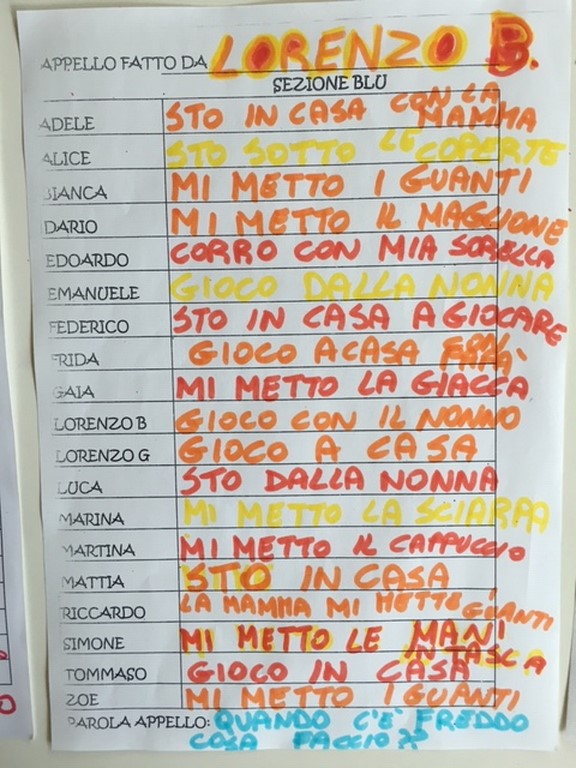 APPELLO FATTO DA LORENZO B.
SEZIONE BLU
ADELE STO IN CASA CON LA MAMMA
ALICE STO SOTTO LE COPERTE
BIANCA MI METTO I GUANTI
DARIO MI METTO IL MAGLIONE
EDOARDO CORRO CON MIA SORELLA
EMANUELE GIOCO DALLA NONNA
FEDERICO STO IN CASA A GIOCARE
FRIDA GIOCO A CASA
GAIA MI METTO LA GIACCA
LORENZO B GIOCO CON IL NONNO
LORENZO G GIOCO A CASA
LUCA STO DALLA NONNA
MARINA MI METTO LA SCIARPA
MARTINA MI METTO IL CAPPUCCIO
MATTIA STO IN CASA
RICCARDO LA MAMMA MI METTE I GUANTI
SIMONE MI METTO LE MANI IN TASCA
TOMMASO GIOCO IN CASA
ZOE MI METTO I GUANTI
PAROLA APPELLO: QUANDO C'È FREDDO
COSA FACCIO?